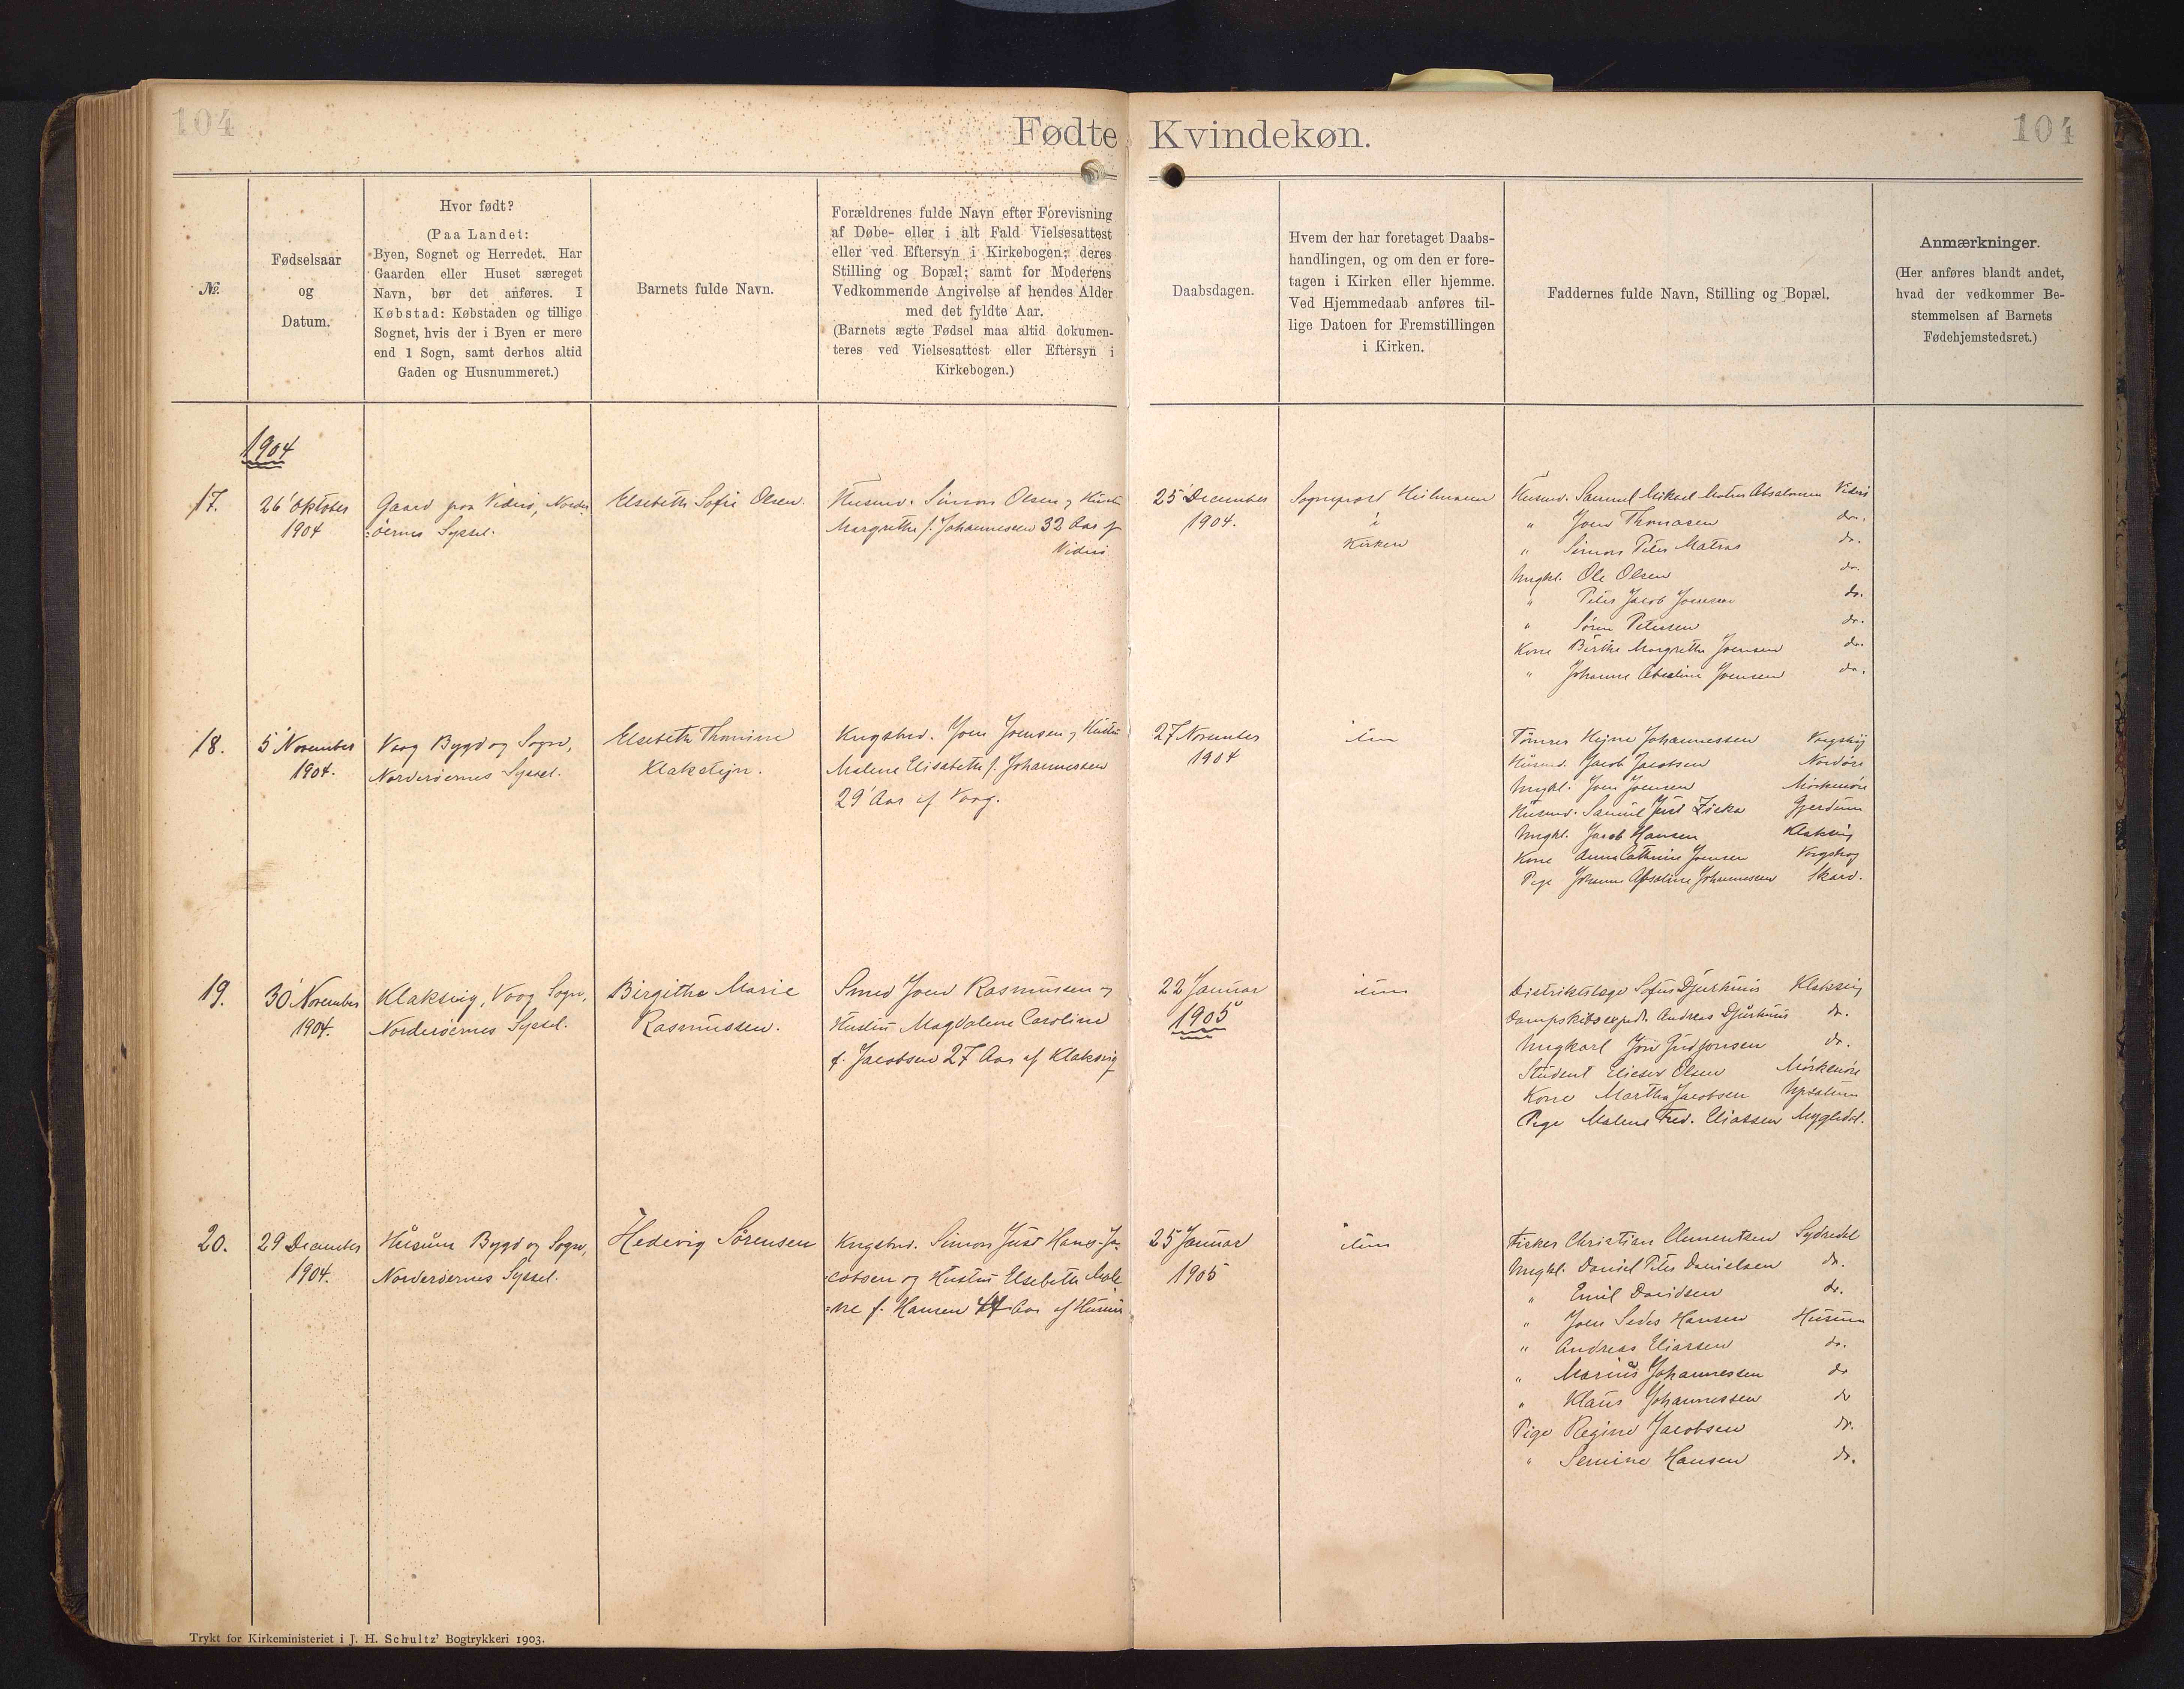 104
Fødte Kvindekøn.
104
№.
Fødselsaar
og
Datum.
Hvor født?
(Paa Landet:
Byen, Sognet og Herredet. Har
Gaarden eller Huset særeget
Navn, bør det anføres. I
Købstad: Købstaden og tillige
Sognet, hvis der i Byen er mere
end 1 Sogn, samt derhos altid
Gaden og Husnummeret.)
Barnets fulde Navn.
Forældrenes fulde Navn efter Forevisning
af Døbe- eller i alt Fald Vielsesattest
eller ved Eftersyn i Kirkebogen; deres
Stilling og Bopæl; samt for Moderens
Vedkommende Angivelse af hendes Alder
med det fyldte Aar.
(Barnets ægte Fødsel maa altid dokumen-
teres ved Vielsesattest eller Eftersyn i
Kirkebogen.)
Daabsdagen.
Hvem der har foretaget Daabs-
handlingen, og om den er fore-
tagen i Kirken eller hjemme.
Ved Hjemmedaab anføres til-
lige Datoen for Fremstillingen
i Kirken.
Faddernes fulde Navn, Stilling og Bopæl.
Anmærkninger.
(Her anføres blandt andet,
hvad der vedkommer Be-
stemmelsen af Barnets
Fødehjemstedsret.)
1904
17.
26 Oktober
1904
Gaard paa Viderø, Norder
:øernes Syssel.
Elsebeth Sofie Olsen.
Husmd. Simon Olsen og Hustru
Margrethe f. Johannessen 32 Aar af
Viderø
25 December
1904.
Sogneprest Heilmann
i
Kirken
Husmd. Samuel Mikael Absalonsen Viderø
" Joen Thomasen do.
" Simon Peter Matras do.
Ungkl. Ole Olsen do.
" Peter Jacob Joensen do.
" Søren Petersen do.
Kone Birthe Margrethe Joensen do.
" Johanne Joensen do.
18.
5 November
1904.
Vaag Bygd og Sogn,
Norderøernes Syssel.
Elsebeth Thomine
Klakstejn.
Kngsbd. Joen Joensen og Hustru
Malene Elisabeth f. Johannessen
29 Aar af Vaag.
27 November
1904
item
Tømrer Hejne Johannessen
Husmd. Jacob Jacobsen Nordøre
Ungkl. Joen Joensen Mørkenøre
Husmd. Samuel Just Ziska Gjerdum
Ungkl. Jacob Hansen Klaksvig
Kone Anna Cathrine Joensen
Pige Johanne Absoline Johannessen Skard.
19.
30 November
1904.
Klaksvig, Vaag Sogn,
Norderøernes Syssel.
Birgithe Marie
Rasmussen.
Smed Joen Rasmussen og
Hustru Magdalene Caroline
f. Jacobsen 27 Aar af Klaksvig
22 Januar
1905
item
Distriktslæge Sofus Djurhuus Klaksvig
Dampskibsexped. Andreas Djurhuus do.
Ungkarl do.
Student Elieser Olsen Mørkenøre
Kone Martha Jacobsen Upsalum
Pige Malene Fred. Eliassen Mygledal.
20.
29 December
1904.
Husum Bygd og Sogn,
Norderøernes Syssel.
Hedevig Sørensen
Kngsbd. Simon Just Hans-Ja-
cobsen og Hustru Elsebeth Male
=ne f. Hansen 44 Aar af Husum
25 Januar
1905
item
Fisker Christian Clementsen Sydredal
Ungkl. Daniel Peter Danielsen do.
" Emil Davidsen do.
" Joen Hansen Husum
" Andreas Eliassen do.
" Marius Johannessen do
" Klaus Johannessen do
Pige Regine Jacobsen do.
" Semine Hansen do.
Trykt for Kirkeministeriet i J. H. Schultz' Bogtrykkeri 1903.